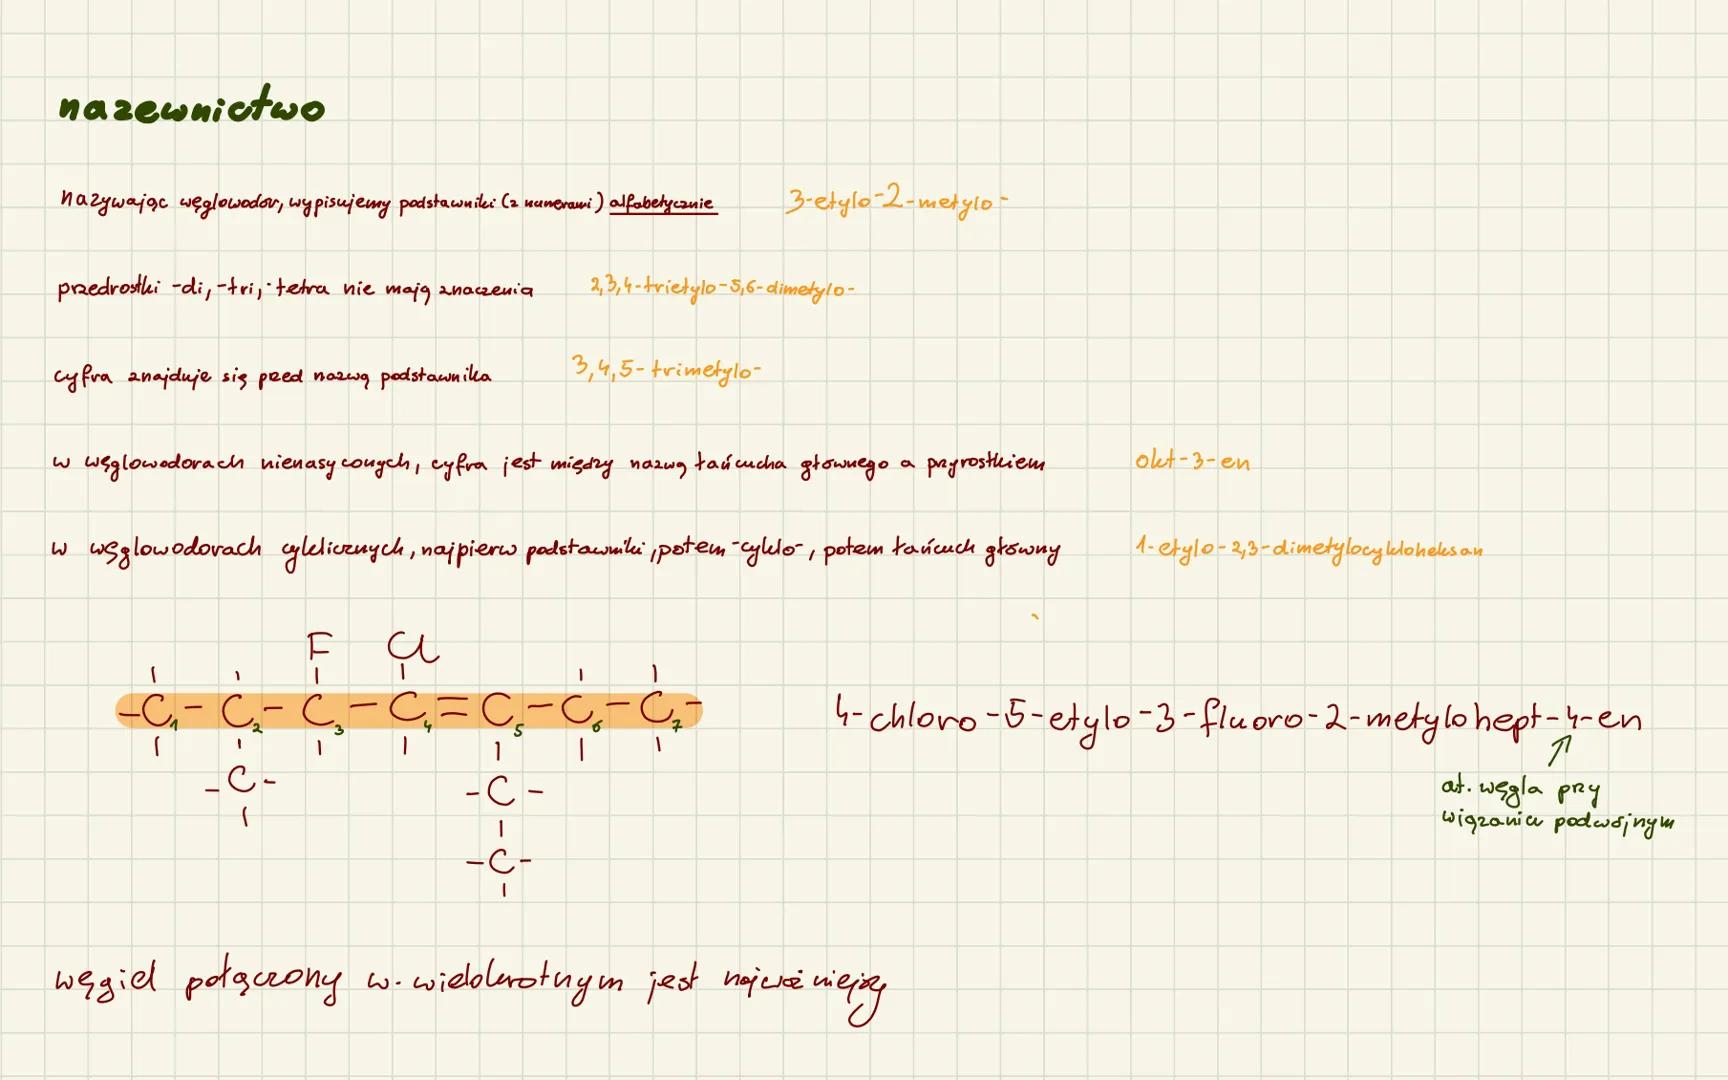 nazewnictwo
nazywając węglowodór, wypisujemy podstawniki (z numerami) alfabetycznie 3-etylo-2-metylo-
przedrostki -di, -tri, -tetra nie mają znaczenia 2,3,4-trietylo-5,6-dimetylo-
cyfra znajduje się przed nazwą podstawnika 3,4,5-trimetylo-
w węglowodorach nienasyconych, cyfra jest między nazwą łańcucha głównego a przyrostkiem okt-3-en
w węglowodorach cyklicznych, najpierw podstawniki, potem -cyklo-, potem łańcuch główny 1-etylo-2,3-dimetylocykloheksan
F Cl
-C1-C2-C3-C4=C5-C6-C7-
4-chloro-5-etylo-3-fluoro-2-metylohept-4-en
-C- -C-
at. węgla przy
wiązaniu podwójnym
-C-
węgiel połączony w. wielokrotnym jest najważniejszy